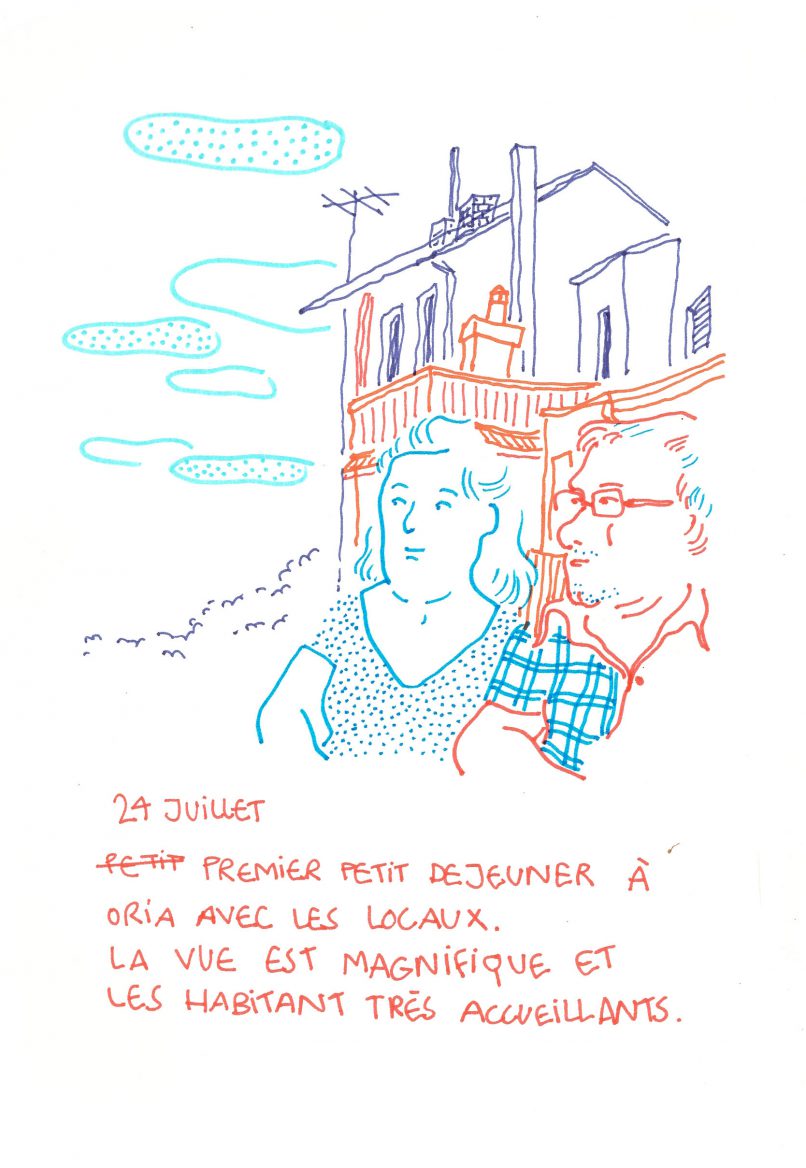 24 JUILLET
PETIT PREMIER PETIT DEJEUNER À
ORIA AVEC LES LOCAUX.
LA VUE EST MAGNIFIQUE ET
LES HABITANT TRÈS ACCUEILLANTS.